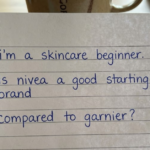 i'm a skincare beginner.
is nivea a good starting
brand
compared to garnier?